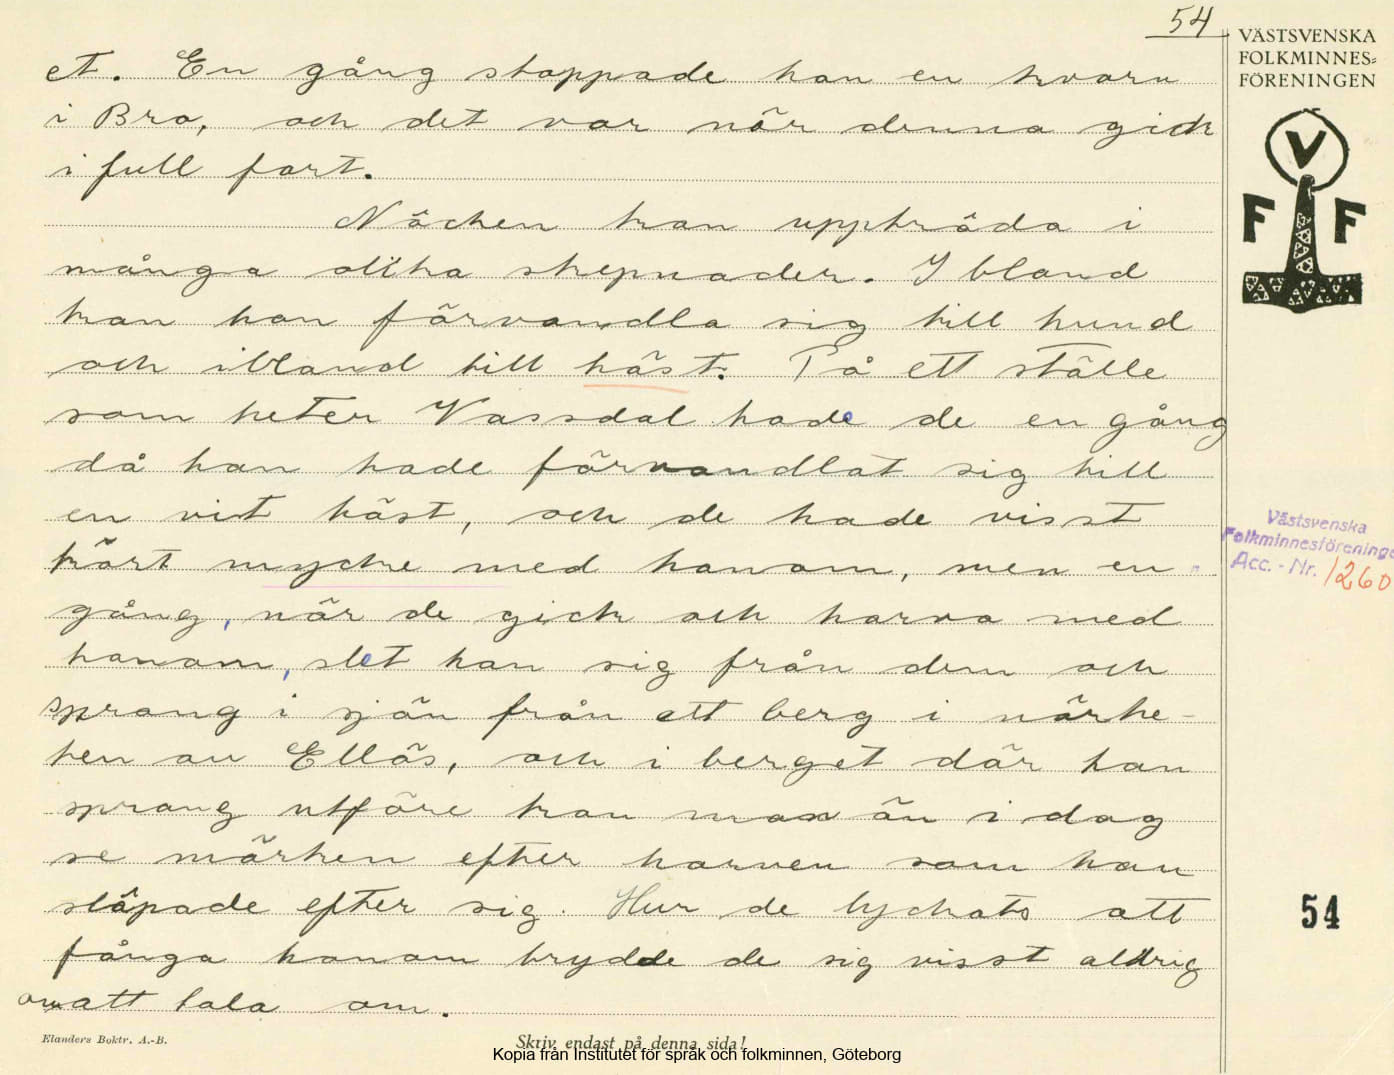 54
VÄSTSVENSKA
FOLKMINNES=
FÖRENINGEN
V
F F
et. En gång stoppade han en kvarn
i Bro, och det var när denna gick
i full fart.
Näcken kan uppträda i
många olika skepnader. I bland
kan han förvandla sig till hund
och ibland till häst. På ett ställe
som heter Vassdal hade de en gång
då han hade förvandlat sig till
en vit häst, och de hade visst
kört mycke med honom, men en
gång, när de gick och harva med
honom, slet han sig från dem och
sprang i sjön från ett berg i närhe-
ten av Ellös, och i berget där han
sprang utföre kan man än i dag
se märken efter harven som han
släpade efter sig. Hur de lyckats att
fånga honom brydde de sig visst aldrig
om att tala om.
Västsvenska
Folkminnesföreningen
Acc. - Nr. 1260
54
Elanders Boktr. A.-B.
Skriv endast på denna sida!
Kopia från Institutet för språk och folkminnen, Göteborg